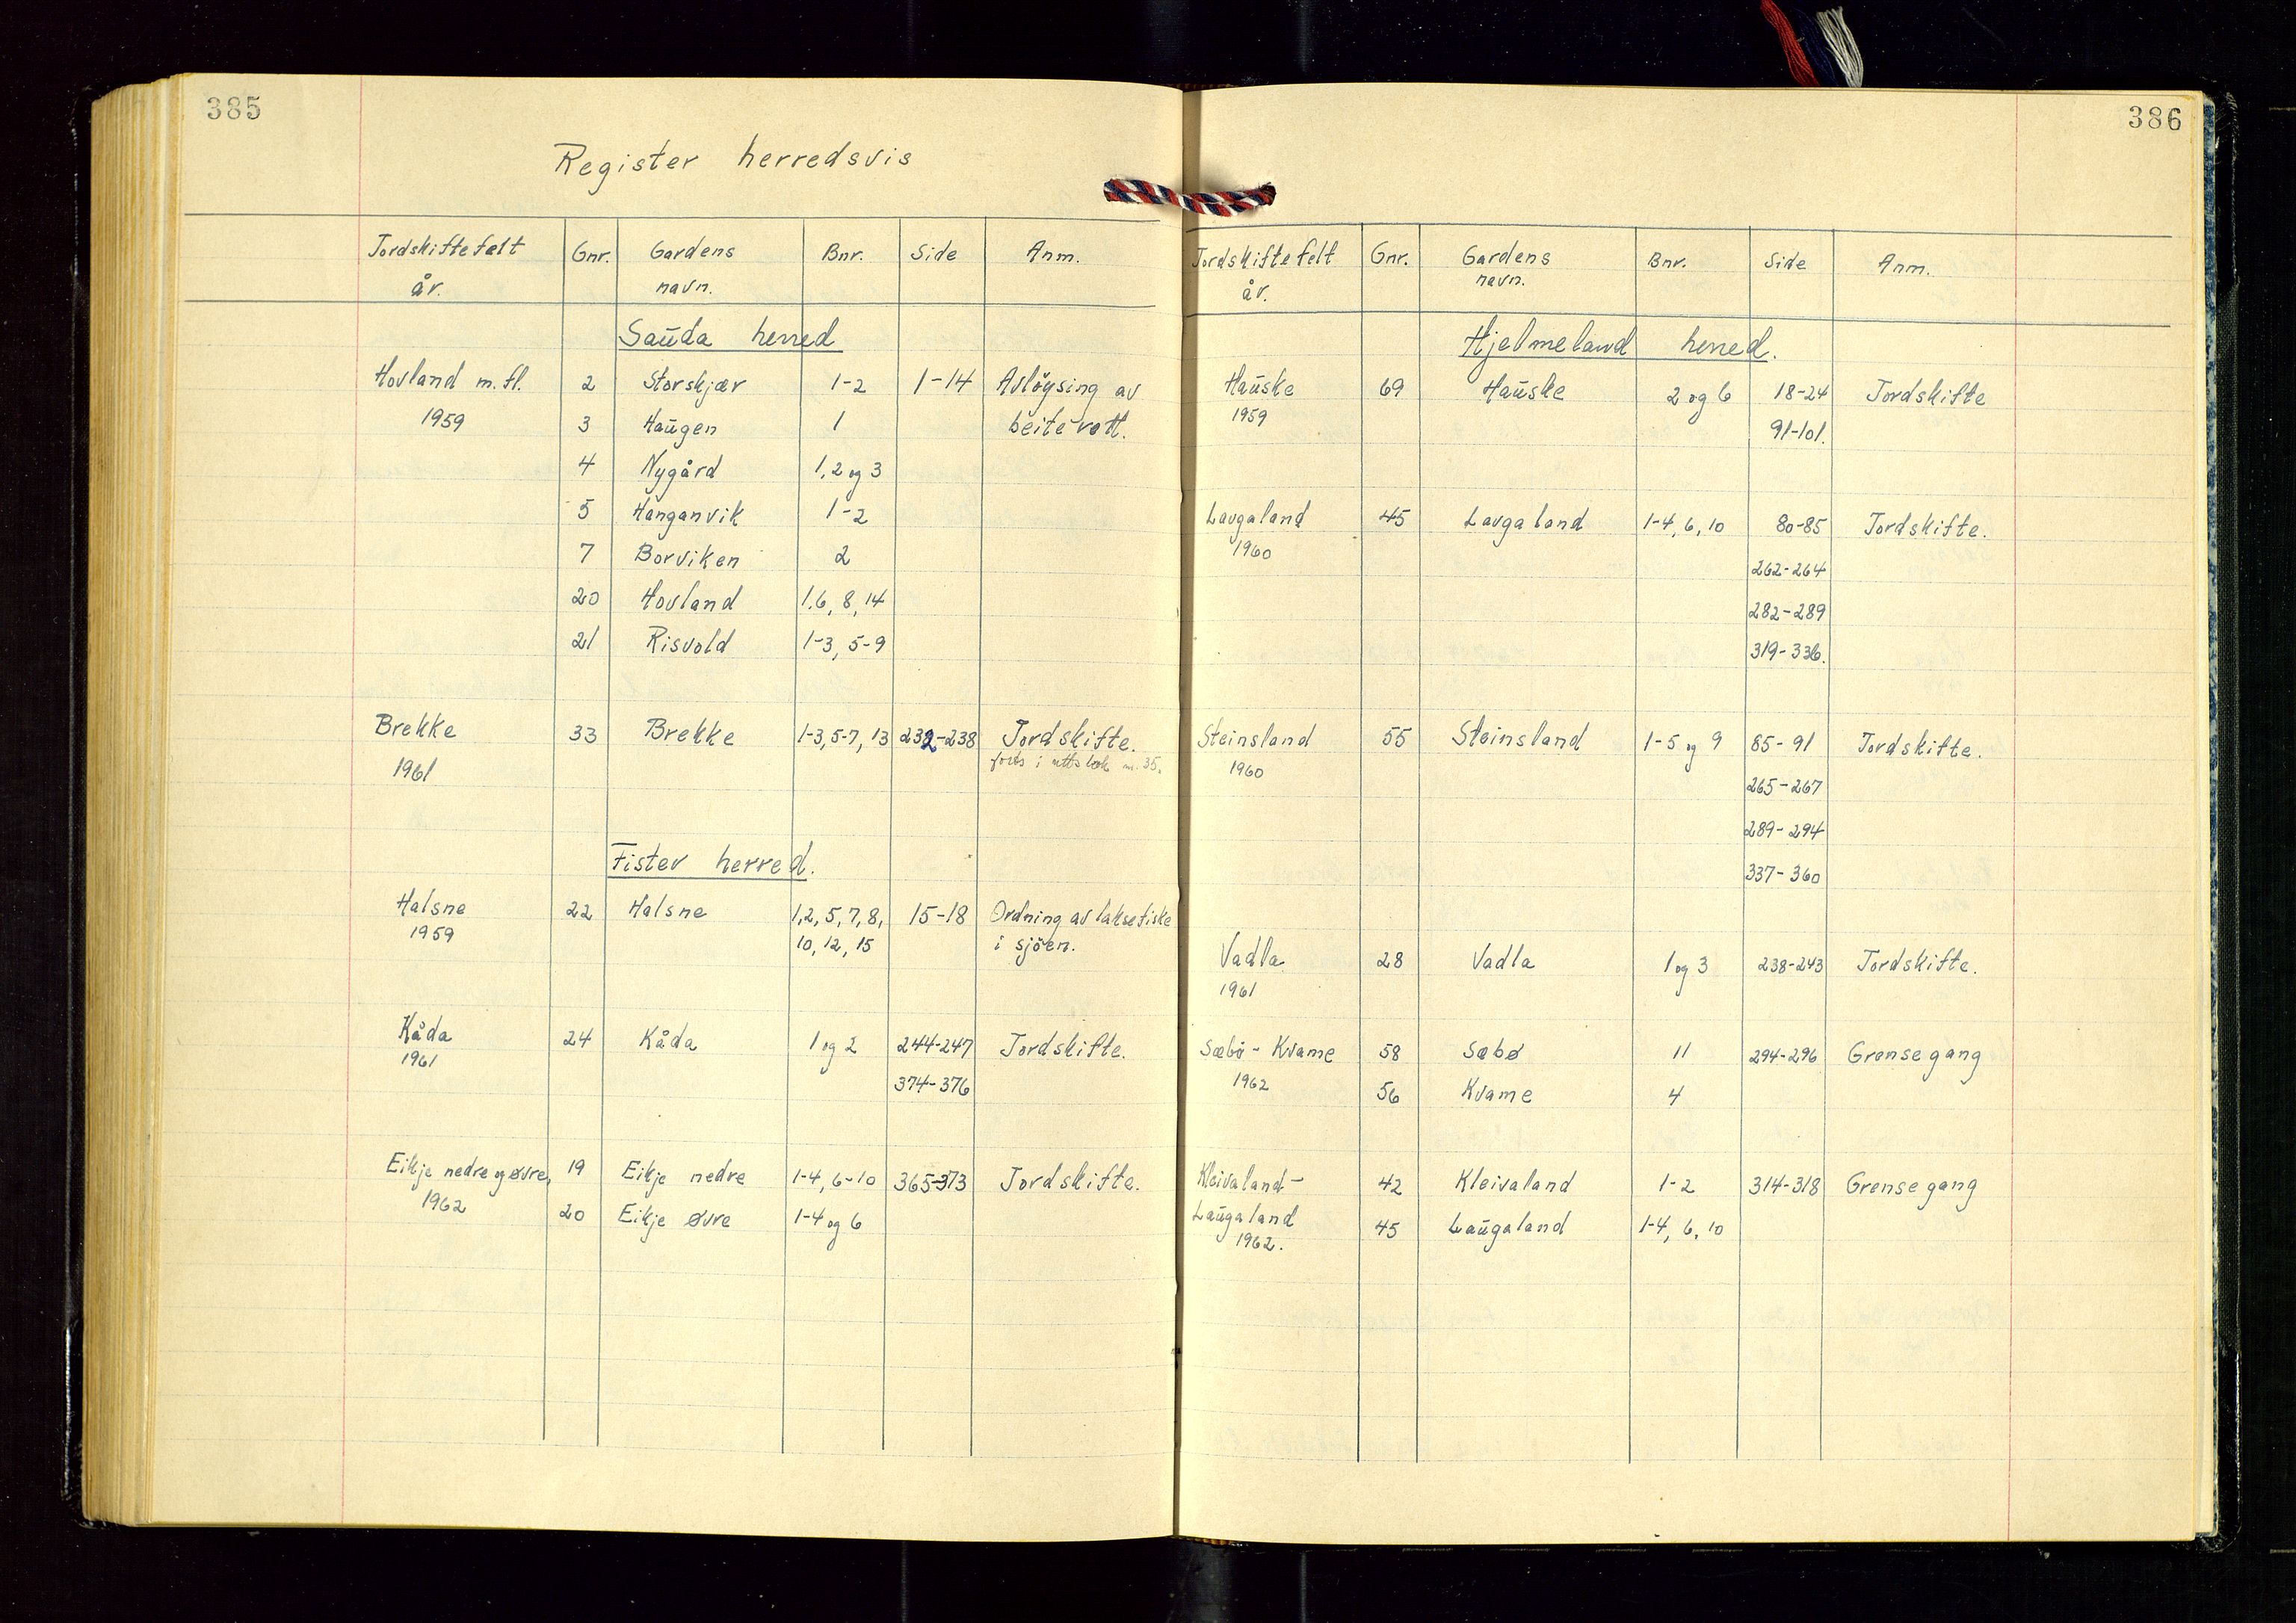 385
Register herredsvis
Jordskiftefelt år. Gnr. Gardens navn. Bnr. Side Anm.
Sauda herred
Hovland m.fl. 2 Storskjær 1-2 1-14 Avløysing av
1959 3 Haugen 1 beiterett.
4 Nygård 1, 2 og 3
5 Hanganvik 1-2
7 Borviken 2
20 Hovland 1, 6, 8, 14
21 Risvold 1-3, 5-9
Brekke 33 Brekke 1-3, 5-7, 13 232-238 Jordskifte.
1961 forts i 35.
Fister herred.
Halsne 22 Halsne 1, 2, 5, 7, 8, 15-18 Ordning av laksefiske
1959 10, 12, 15 i sjøen.
Kåda 24 Kåda 1 og 2 244-247 Jordskifte.
1961 374-376
Eikje nedre og øvre, 19 Eikje nedre 1-4, 6-10 365-373 Jordskifte.
1962 20 Eikje øvre 1-4 og 6
386
Jordskiftefelt år. Gnr. Gardens navn. Bnr. Side Anm.
Hjelmeland herred.
Hauske 69 Hauske 2 og 6 18-24 Jordskifte
1959 91-101.
Laugaland 45 Laugaland 1-4, 6, 10 80-85 Jordskifte.
1960 262-264
282-289
319-336.
Steinsland 55 Steinsland 1-5 og 9 85-91 Jordskifte.
1960 265-267
289-294
337-360
Vadla 28 Vadla 1 og 3 238-243 Jordskifte.
1961
Sæbø - Kvame 58 Sæbø 11 294-296 Grensegang
1962 56 Kvame 4
Kleivaland- 42 Kleivaland 1-2 314-318 Grensegang
Laugaland 45 Laugaland 1-4, 6, 10
1962.